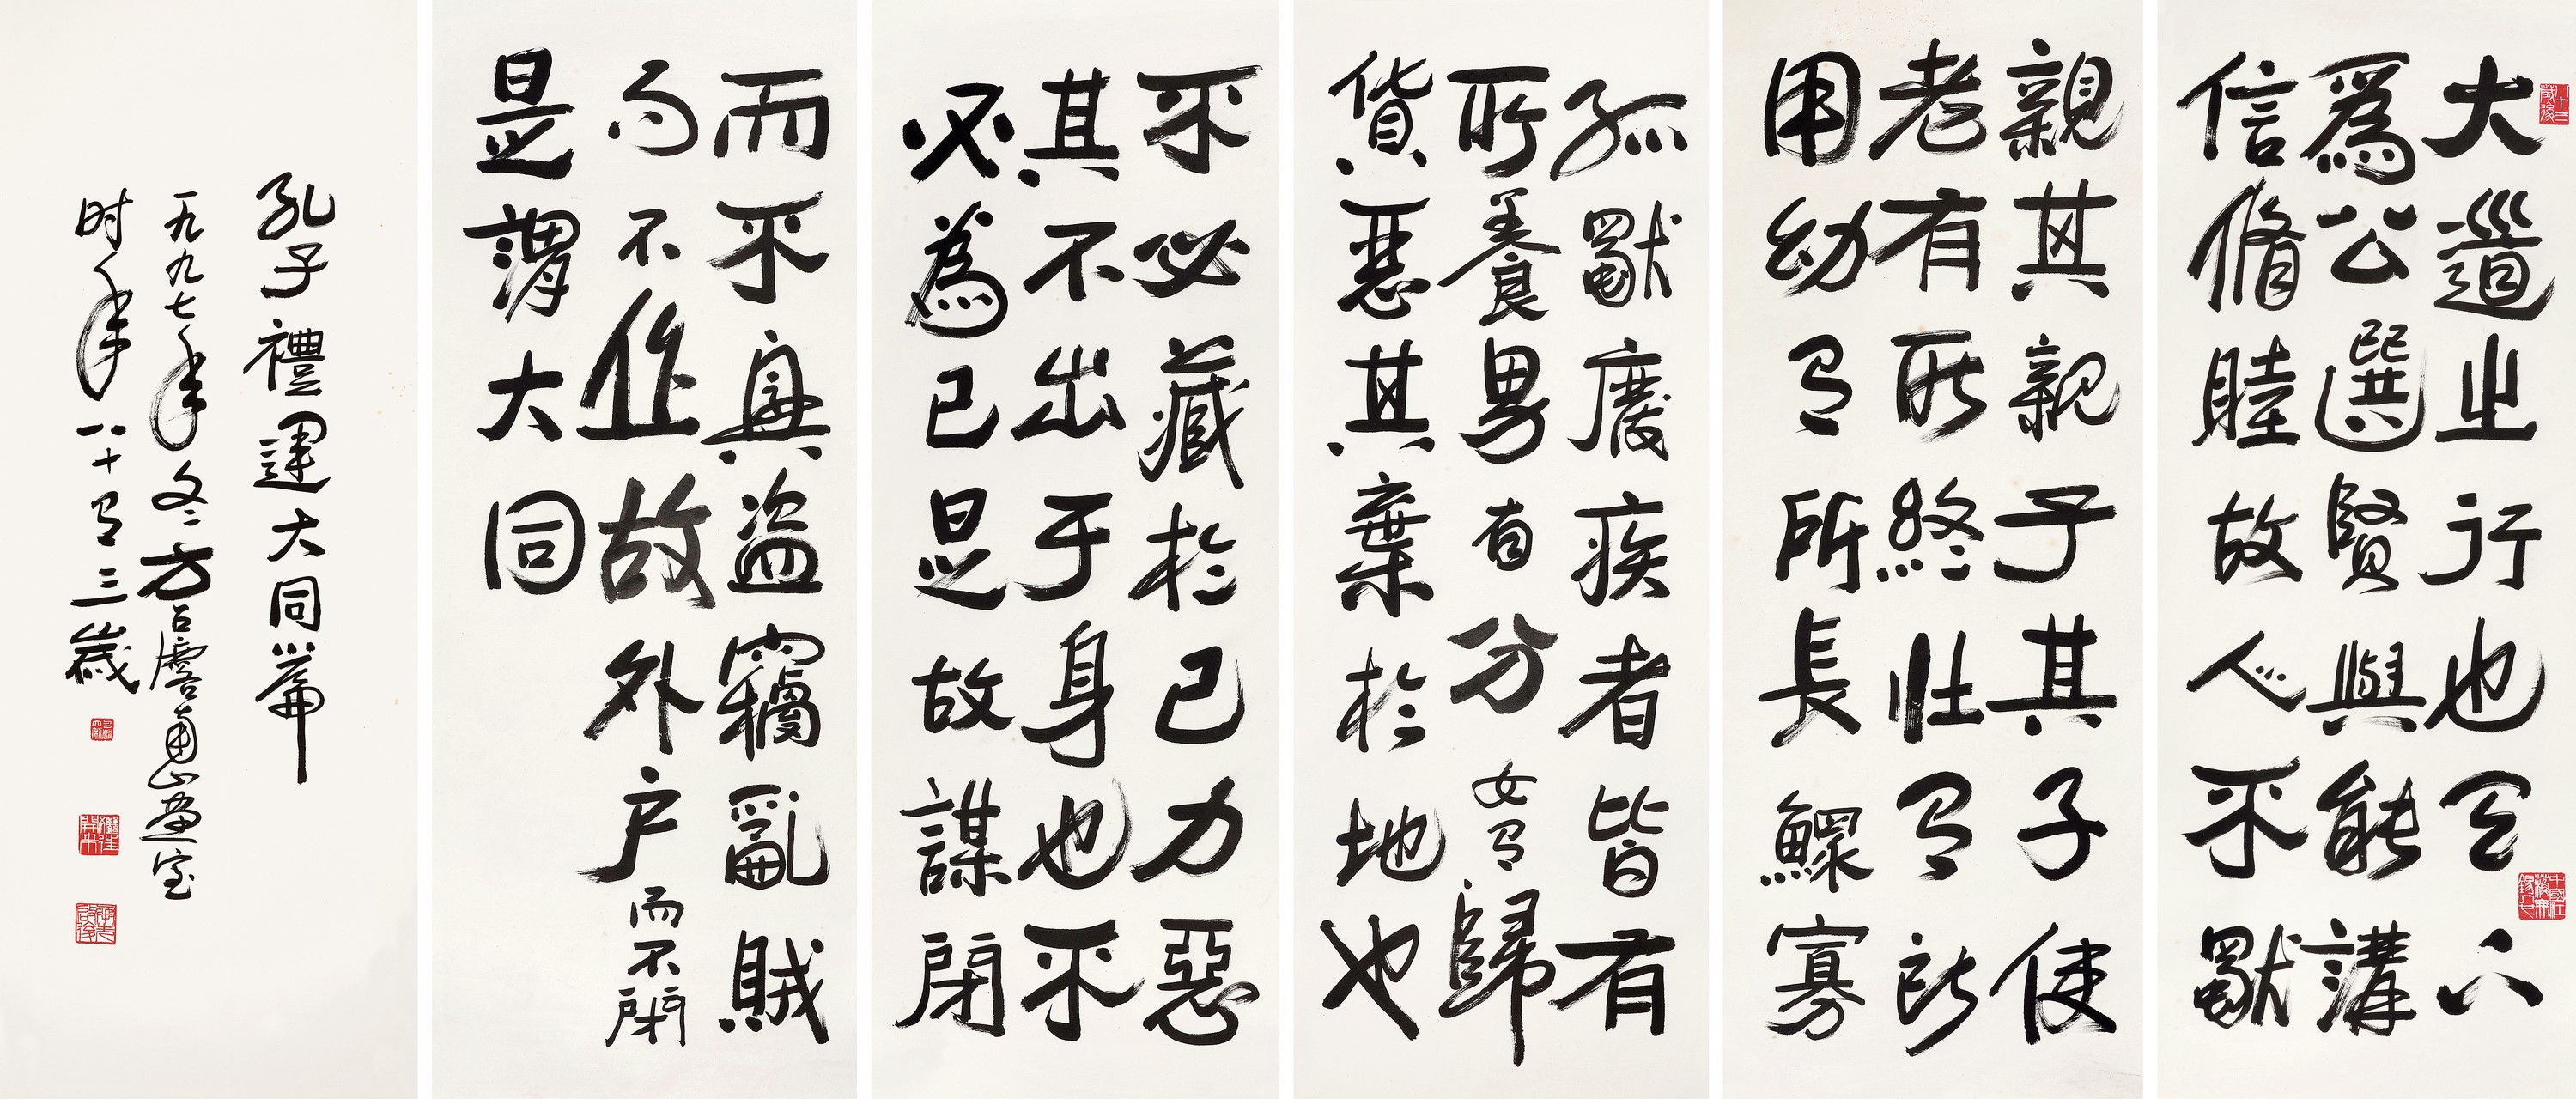 大道之行也天下
爲公選賢與能講
信脩睦故人不獨
親其親子其子使
老有所終壯有所
用幼有所長鰥寡
孤獨廢疾者皆有
所養男有分女有歸
貨惡其棄於地也
不必藏於己力惡
其不出于身也不
必為己是故謀閉
而不興盜竊亂賊
而不作故外户而不閉
是謂大同
孔子禮運大同篇
一九九七年冬方召麐山畫室
时年八十有三歲
繼往開來
承先啟後